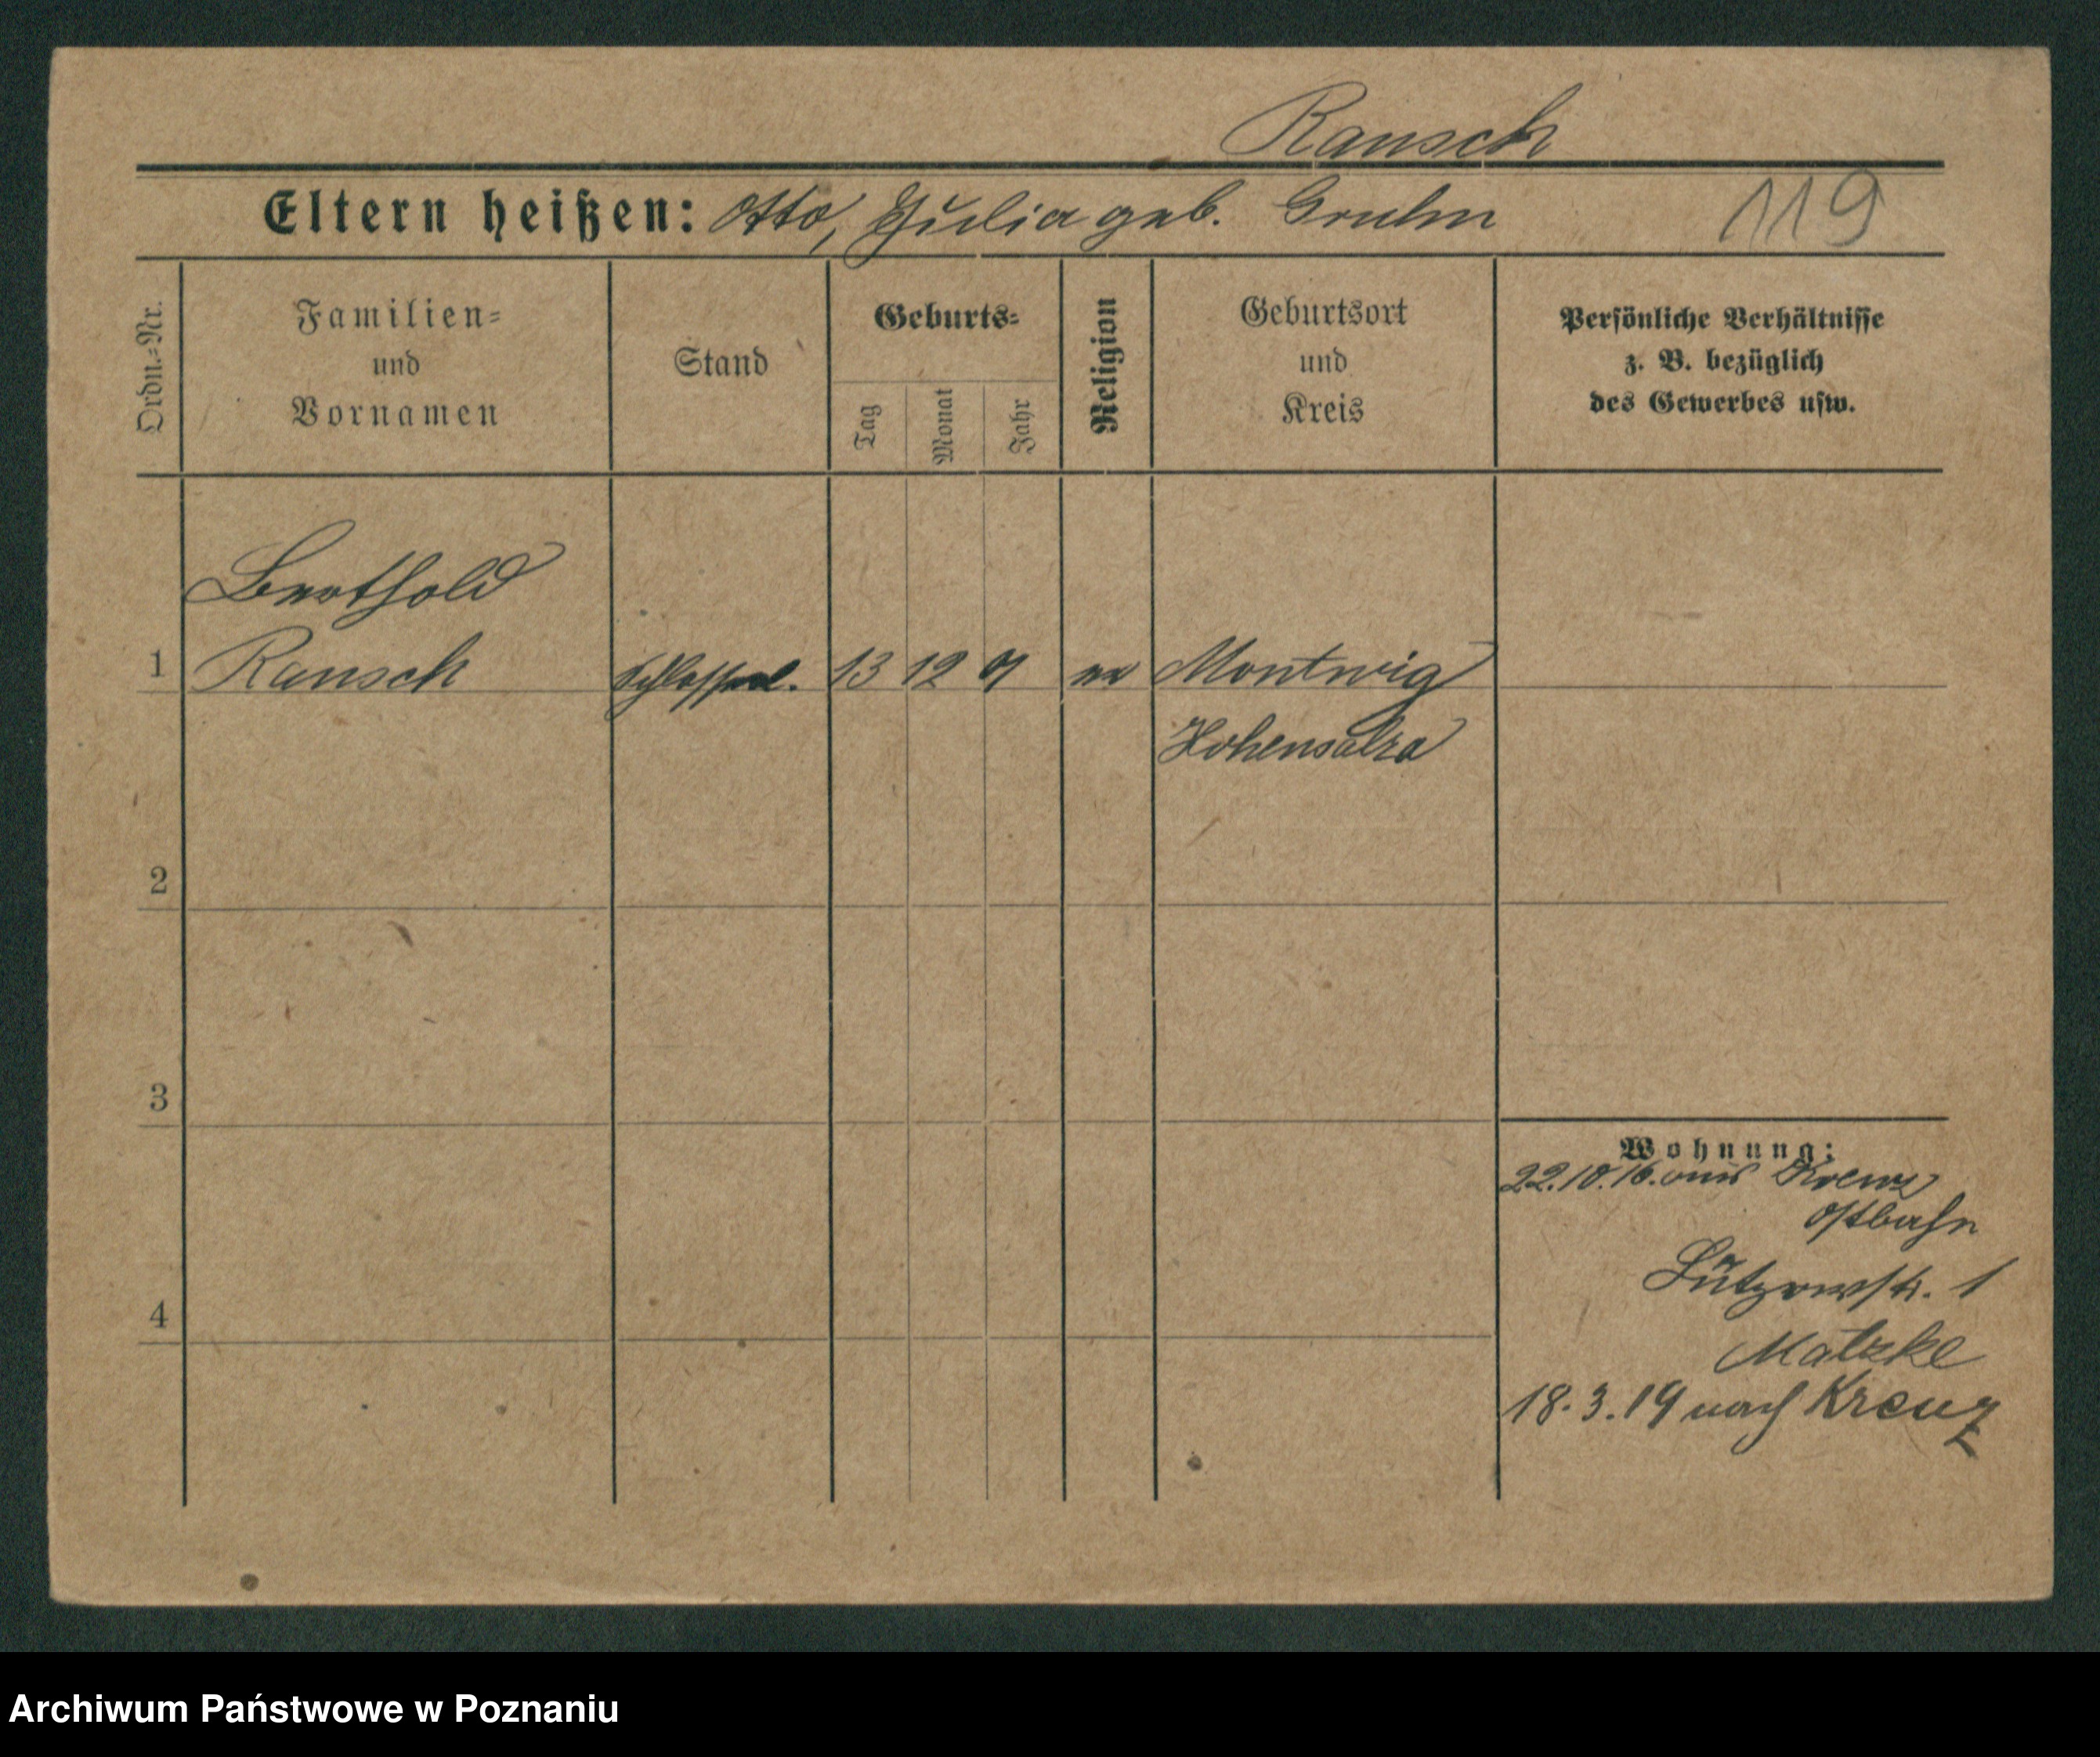 Rausch
Eltern heißen: Otto, Julia geb. Gruhn 119
Ordn.=Nr.
Familien=
und
Vornamen
Stand
Geburts=
Tag
Monat
Jahr
Religion
Geburtsort
und
Kreis
Persönliche Verhältnisse
z. B. bezüglich
des Gewerbes usw.
Berthold
1 Rausch 13 12 Montwig
Hohensalza
2
3
4
Wohnung:
22.10.16. aus Kreuz
Ostbahn
Lützowstr. 1
Matzke
18.3.19 nach Kreuz
Archiwum Państwowe w Poznaniu